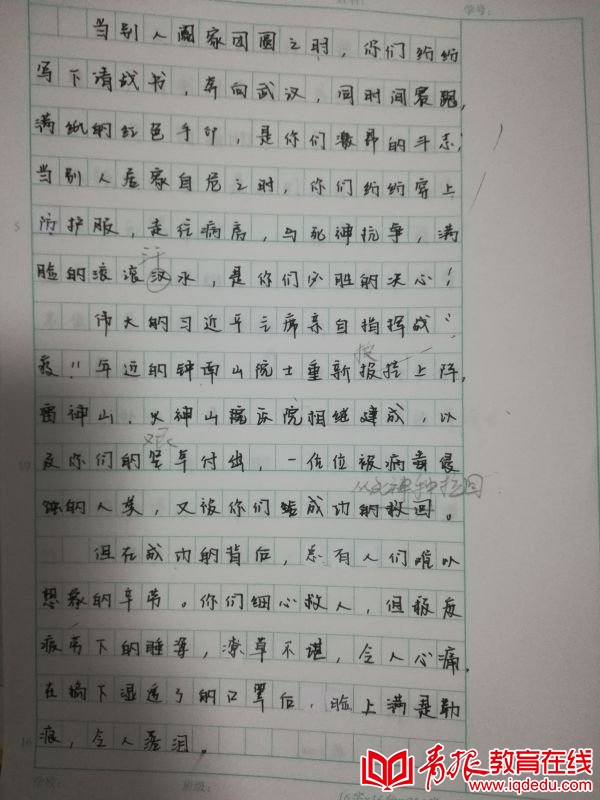 学号:
当别人阖家团圆之时，你们纷纷
写下请战书，奔向武汉，同时间赛跑，
满纸的红色手印，是你们激昂的斗志；
当别人居家自危之时，你们纷纷穿上
5
防护服，走往病房，与死神抗争，满
汗
脸的滚滚汉水，是你们必胜的决心！
伟大的习近平主席亲自指挥战“
按
疫”年近的钟南山院士重新报挂上阵，
雷神山、火神山医院相继建成，以
艰
10
及你们的坚辛付出，一位位被病毒侵
从死神手中拉回
蚀的人类，又被你们成功的救回。
但在成功的背后，总有人们难以
想象的辛劳。你们细心救人，但极度
疲劳下的睡姿，潦草不堪，令人心痛，
在摘下湿透了的口罩后，脸上满是勒
15
痕，令人落泪。
学校:
班级:
青报教育在线
www.iqdedu.com